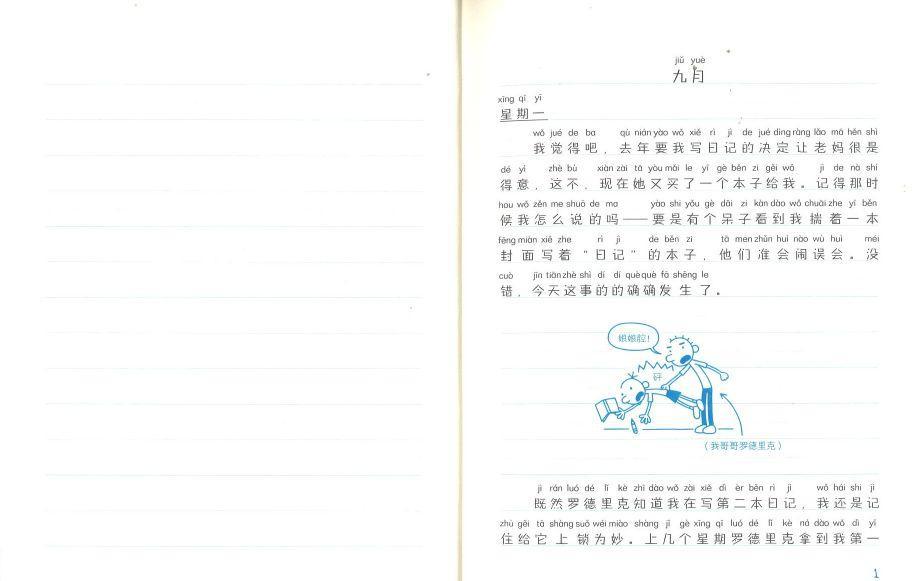 jiǔ yuè
九月
xīng qī yī
星期一
wǒ jué de ba qù nián yào wǒ xiě rì jì de jué dìng ràng lǎo mā hěn shì
我觉得吧，去年要我写日记的决定让老妈很是
dé yì zhè bù xiàn zài tā yòu mǎi le yí gè běn zi gěi wǒ jì de nà shí
得意，这不，现在她又买了一个本子给我。记得那时
hou wǒ zěn me shuō de ma yào shi yǒu gè dāi zi kàn dào wǒ chuāi zhe yì běn
候我怎么说的吗——要是有个呆子看到我揣着一本
fēng miàn xiě zhe rì jì de běn zi tā men zhǔn huì nào wù huì méi
封面写着“日记”的本子，他们准会闹误会。没
cuò jīn tiān zhè shì dí dí què què fā shēng le
错，今天这事的的确确发生了。
娘娘腔！
砰
（我哥哥罗德里克）
jì rán luó dé lǐ kè zhī dào wǒ zài xiě dì èr běn rì jì wǒ hái shi jì
既然罗德里克知道我在写第二本日记，我还是记
zhù gěi tā shàng suǒ wéi miào shàng jǐ gè xīng qī luó dé lǐ kè ná dào wǒ dì yī
住给它上锁为妙。上几个星期罗德里克拿到我第一
1